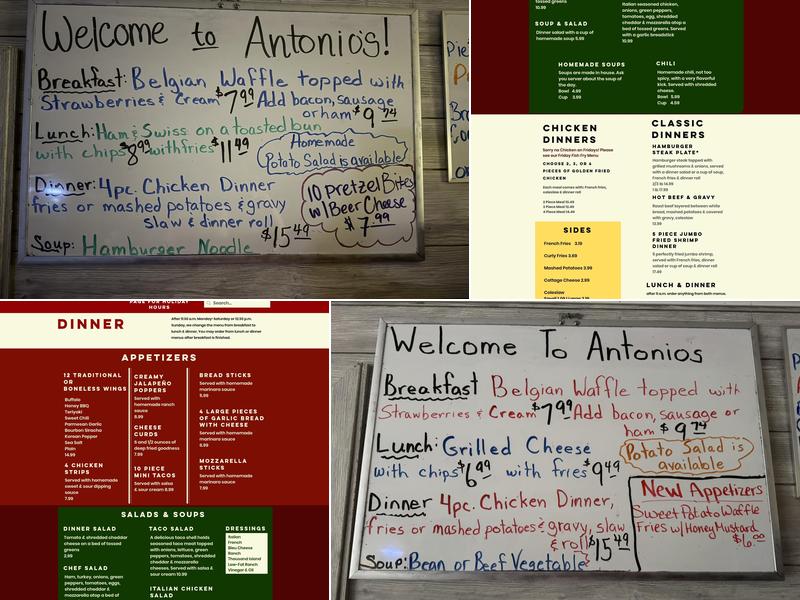 Welcome to Antonio's!
Breakfast: Belgian Waffle topped with
Strawberries & Cream $7.99 Add bacon, sausage
or ham $9.74
Lunch: Ham & Swiss on a toasted bun
with chips $8.99 with fries $11.49
Homemade
Potato Salad is available
Dinner: 4pc. Chicken Dinner
fries or mashed potatoes & gravy
slaw & dinner roll
$15.49
10 Pretzel Bites
w/Beer Cheese
$7.99
Soup: Hamburger Noodle
10.99
SOUP & SALAD
Dinner salad with a cup of
homemade soup 5.99
Italian seasoned chicken,
onions, green peppers,
tomatoes, egg, shredded
cheddar & mozzarella atop a
bed of tossed greens. Served
with a garlic breadstick
10.99
HOMEMADE SOUPS
Soups are made in house. Ask
you server about the soup of
the day.
Bowl 4.99
Cup 3.99
CHILI
Homemade chili, not too
spicy, with a very flavorful
kick. Served with shredded
cheese.
Bowl 5.99
Cup 4.59
CHICKEN
DINNERS
Sorry no Chicken on Fridays! Please
see our Friday Fish Fry Menu
CHOOSE 2, 3, OR 4
PIECES OF GOLDEN FRIED
CHICKEN
Each meal comes with French fries,
coleslaw & dinner roll
2 Piece Meal 10.49
3 Piece Meal 12.49
4 Piece Meal 14.49
SIDES
French Fries 3.19
Curly Fries 3.69
Mashed Potatoes 2.99
Cottage Cheese 2.99
Coleslaw
CLASSIC
DINNERS
HAMBURGER
STEAK PLATE*
Hamburger steak topped with
grilled mushrooms & onions, served
with a dinner salad or a cup of soup,
French fries & dinner roll
HOT BEEF & GRAVY
Roast beef layered between white
bread, mashed potatoes & covered
with gravy, coleslaw
13.99
5 PIECE JUMBO
FRIED SHRIMP
DINNER
5 perfectly fried jumbo shrimp,
served with French fries, dinner
salad or cup of soup & dinner roll
17.49
LUNCH & DINNER
after 11 a.m. order anything from both menus.
PAGE FOR HOLIDAY
HOURS
Search...
DINNER
After 11:30 a.m. Monday-Saturday or 12:30 p.m.
Sunday, we change the menu from breakfast to
lunch & dinner. You may order from lunch or dinner
menus after breakfast is finished.
APPETIZERS
12 TRADITIONAL
OR
BONELESS WINGS
Buffalo
Honey BBQ
Teriyaki
Sweet Chili
Parmesan Garlic
Bourbon Siracha
Korean Pepper
Sea Salt
Plain
14.99
4 CHICKEN
STRIPS
Served with homemade
sweet & sour dipping
sauce
7.99
CREAMY
JALAPEÑO
POPPERS
Served with
homemade ranch
sauce
8.99
CHEESE
CURDS
8 and 1/2 ounces of
deep fried goodness
7.99
10 PIECE
MINI TACOS
Served with salsa
& sour cream 8.99
BREAD STICKS
Served with homemade
marinara sauce
5.99
4 LARGE PIECES
OF GARLIC BREAD
WITH CHEESE
Served with homemade
marinara sauce
6.99
MOZZARELLA
STICKS
Served with homemade
marinara sauce
7.99
SALADS & SOUPS
DINNER SALAD
Tomato & shredded cheddar
cheese on a bed of tossed
greens
2.99
CHEF SALAD
Ham, turkey, onions, green
peppers, tomatoes, eggs,
shredded cheddar &
mozzarella atop a bed of
TACO SALAD
A delicious taco shell holds
seasoned taco meat topped
with onions, lettuce, green
peppers, tomatoes, shredded
cheddar & mozzarella
cheeses. Served with salsa &
sour cream 10.99
ITALIAN CHICKEN
SALAD
DRESSINGS
Italian
French
Bleu Cheese
Ranch
Thousand Island
Low-Fat Ranch
Vinegar & Oil
Welcome To Antonios
Breakfast Belgian Waffle topped with
Strawberries & Cream $7.99 Add bacon, sausage or
ham $9.74
Lunch: Grilled Cheese
with chips $6.99 with fries $9.49
Potato Salad is
available
Dinner 4pc. Chicken Dinner,
fries or mashed potatoes & gravy, slaw
& roll $15.49
New Appetizers
Sweet Potato Waffle
Fries w/Honey Mustard
$6.00
Soup: Bean or Beef Vegetable